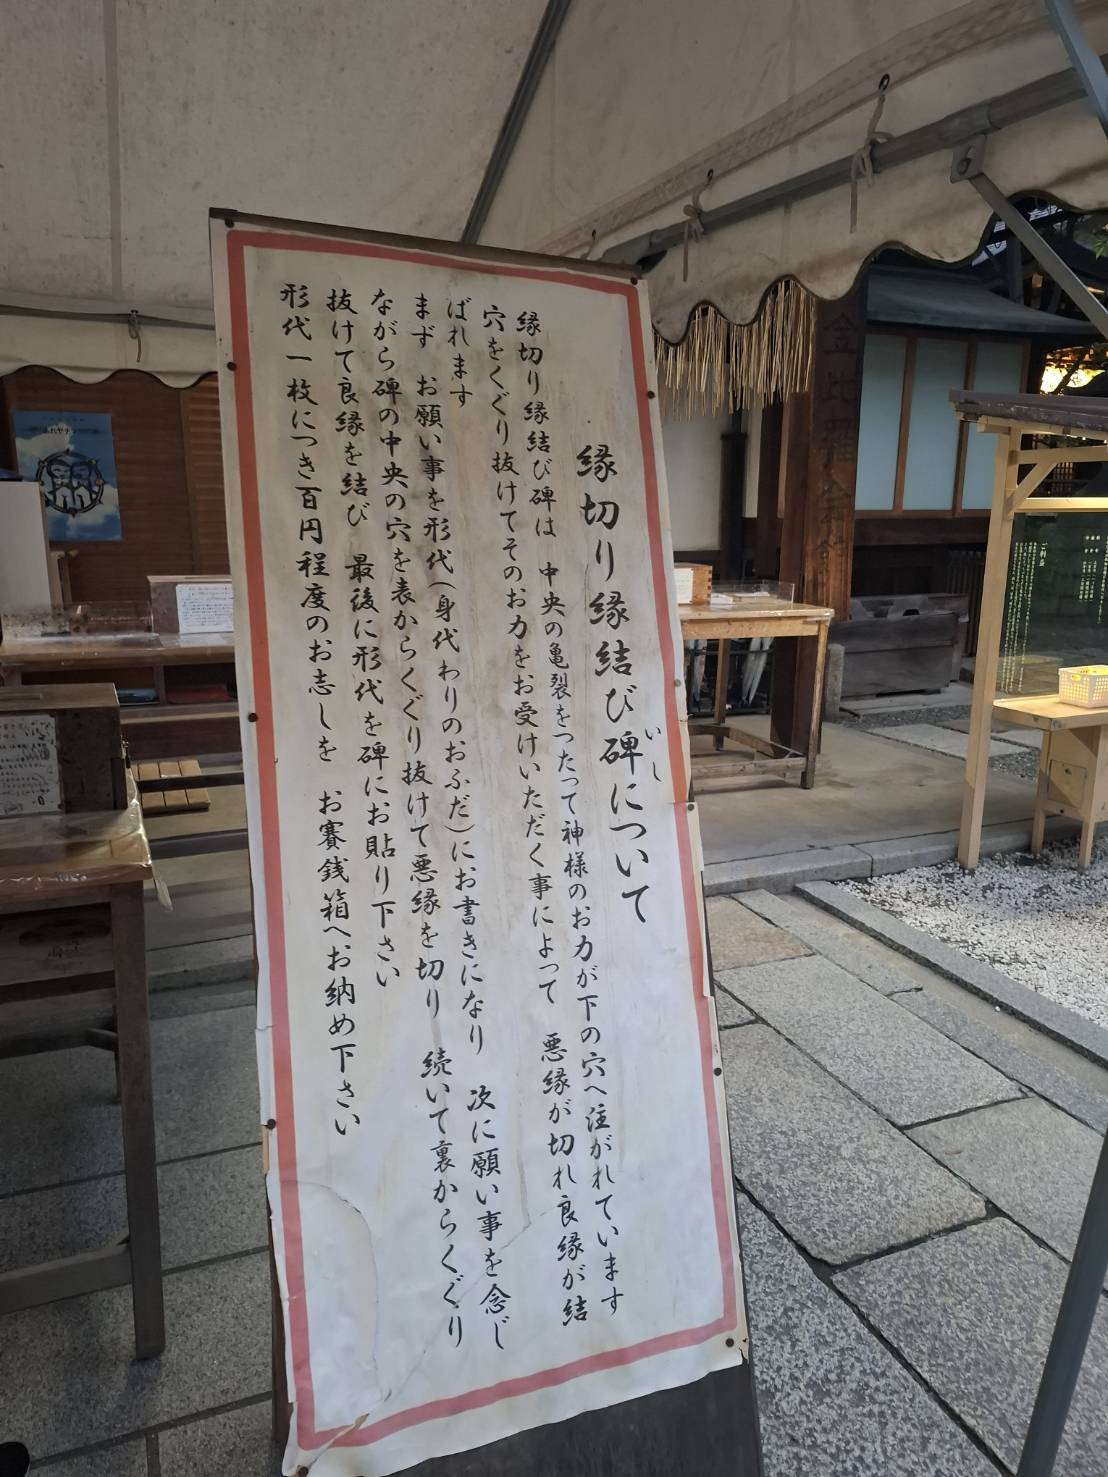 縁切り縁結び碑について
いし
縁切り縁結び碑は 中央の亀裂をつたって神様のお力が下の穴へ注がれています
穴をくぐり抜けてそのお力をお受けいただく事によって 悪縁が切れ良縁が結
ばれます
まず お願い事を形代(身代わりのおふだ)にお書きになり 次に願い事を念じ
ながら碑の中央の穴を表からくぐり抜けて悪縁を切り 続いて裏からくぐり
抜けて良縁を結び 最後に形代を碑にお貼り下さい
形代一枚につき百円程度のお志しを お賽銭箱へお納め下さい
金比羅会